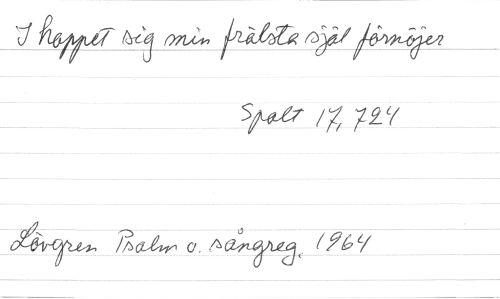 I hoppet sig min frälsta själ förnöjer
Spalt 17, 724
Lövgren Psalm o. sångreg. 1964